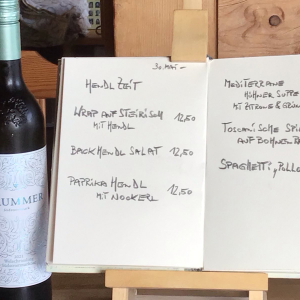 30. MAI -
HENDL ZEIT
WRAP AUF STEIRISCH 12,50
MIT HENDL
BACKHENDL SALAT 12,50
PAPRIKA HENDL 12,50
MIT NOCKERL
MEDITERRANE
HÜHNER SUPPE
MIT ZITRONE & GRÜN
TOSCANISCHE
AUF BOHNEN
SPAGHETTI "POLLO
LUMMER